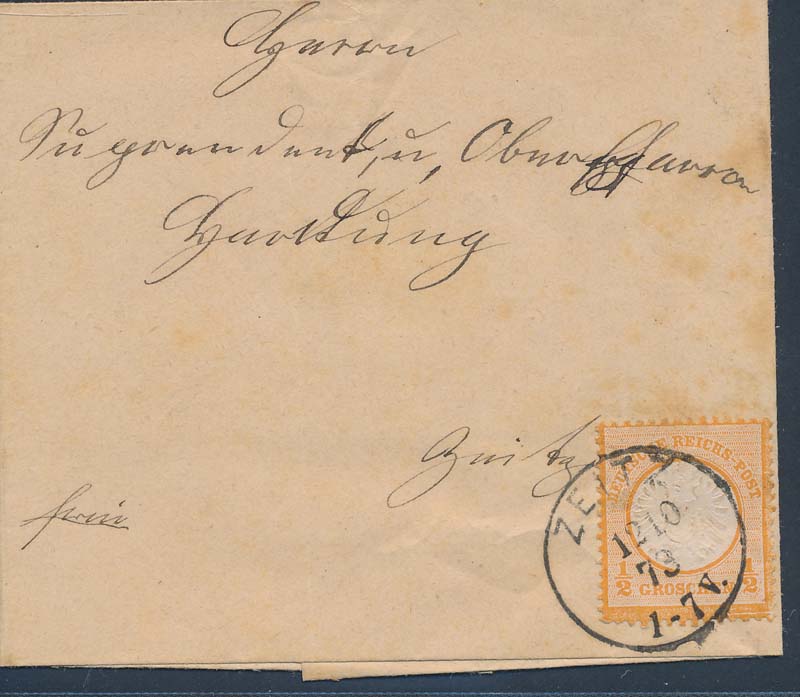 Herrn
Suprendent, u, Oberpfarrer
Hartung
Zeitz
frei
DEUTSCHE REICHS-POST
1/2 GROSCHEN 1/2
ZEITZ
12 10
73
1-7V.